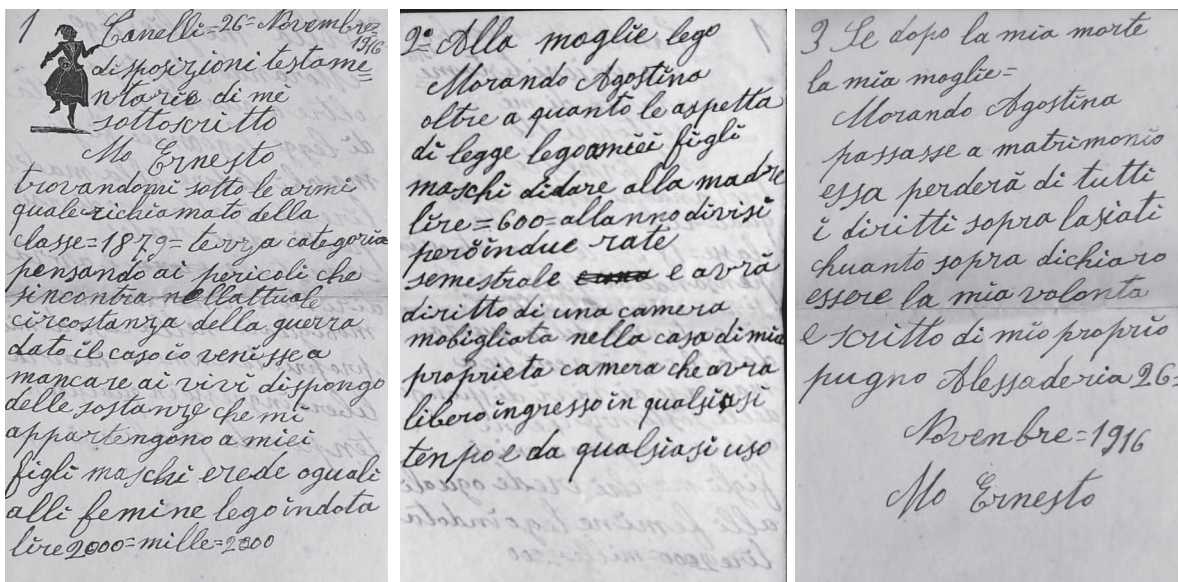 1 Canelli=26=Novembre=
1916
disposizioni testame=
ntarie di me
sottoscritto
Mo Ernesto
trovandomi sotto le armi
quale richiamato della
classe=1879=terza categoria
pensando ai pericoli che
sincontra nellattuale
circostanza della guerra
dato il caso io venisse a
mancare ai vivi dispongo
delle sostanze che mi
appartengono a miei
figli maschi erede oguali
alli femine lego indota
lire 2000=mille=2000
2° Alla moglie lego
Morando Agostina
oltre a quanto le aspetta
di legge lego amiei figli
maschi didare alla madre
lire=600=allanno divisi
peròindue rate
semestrale e avrà
diritto di una camera
mobigliata nella casa di mia
proprietà camera che avrà
libero ingresso in qualsiasi
tenpo e da qualsiasi uso
3 Se dopo la mia morte
la mia moglie=
Morando Agostina
passasse a matrimonio
essa perderà di tutti
i diritti sopra lasiati
chuanto sopra dichiaro
essere la mia volonta
e scritto di mio proprio
pugno Alessaderia 26=
Novenbre=1916
Mo Ernesto